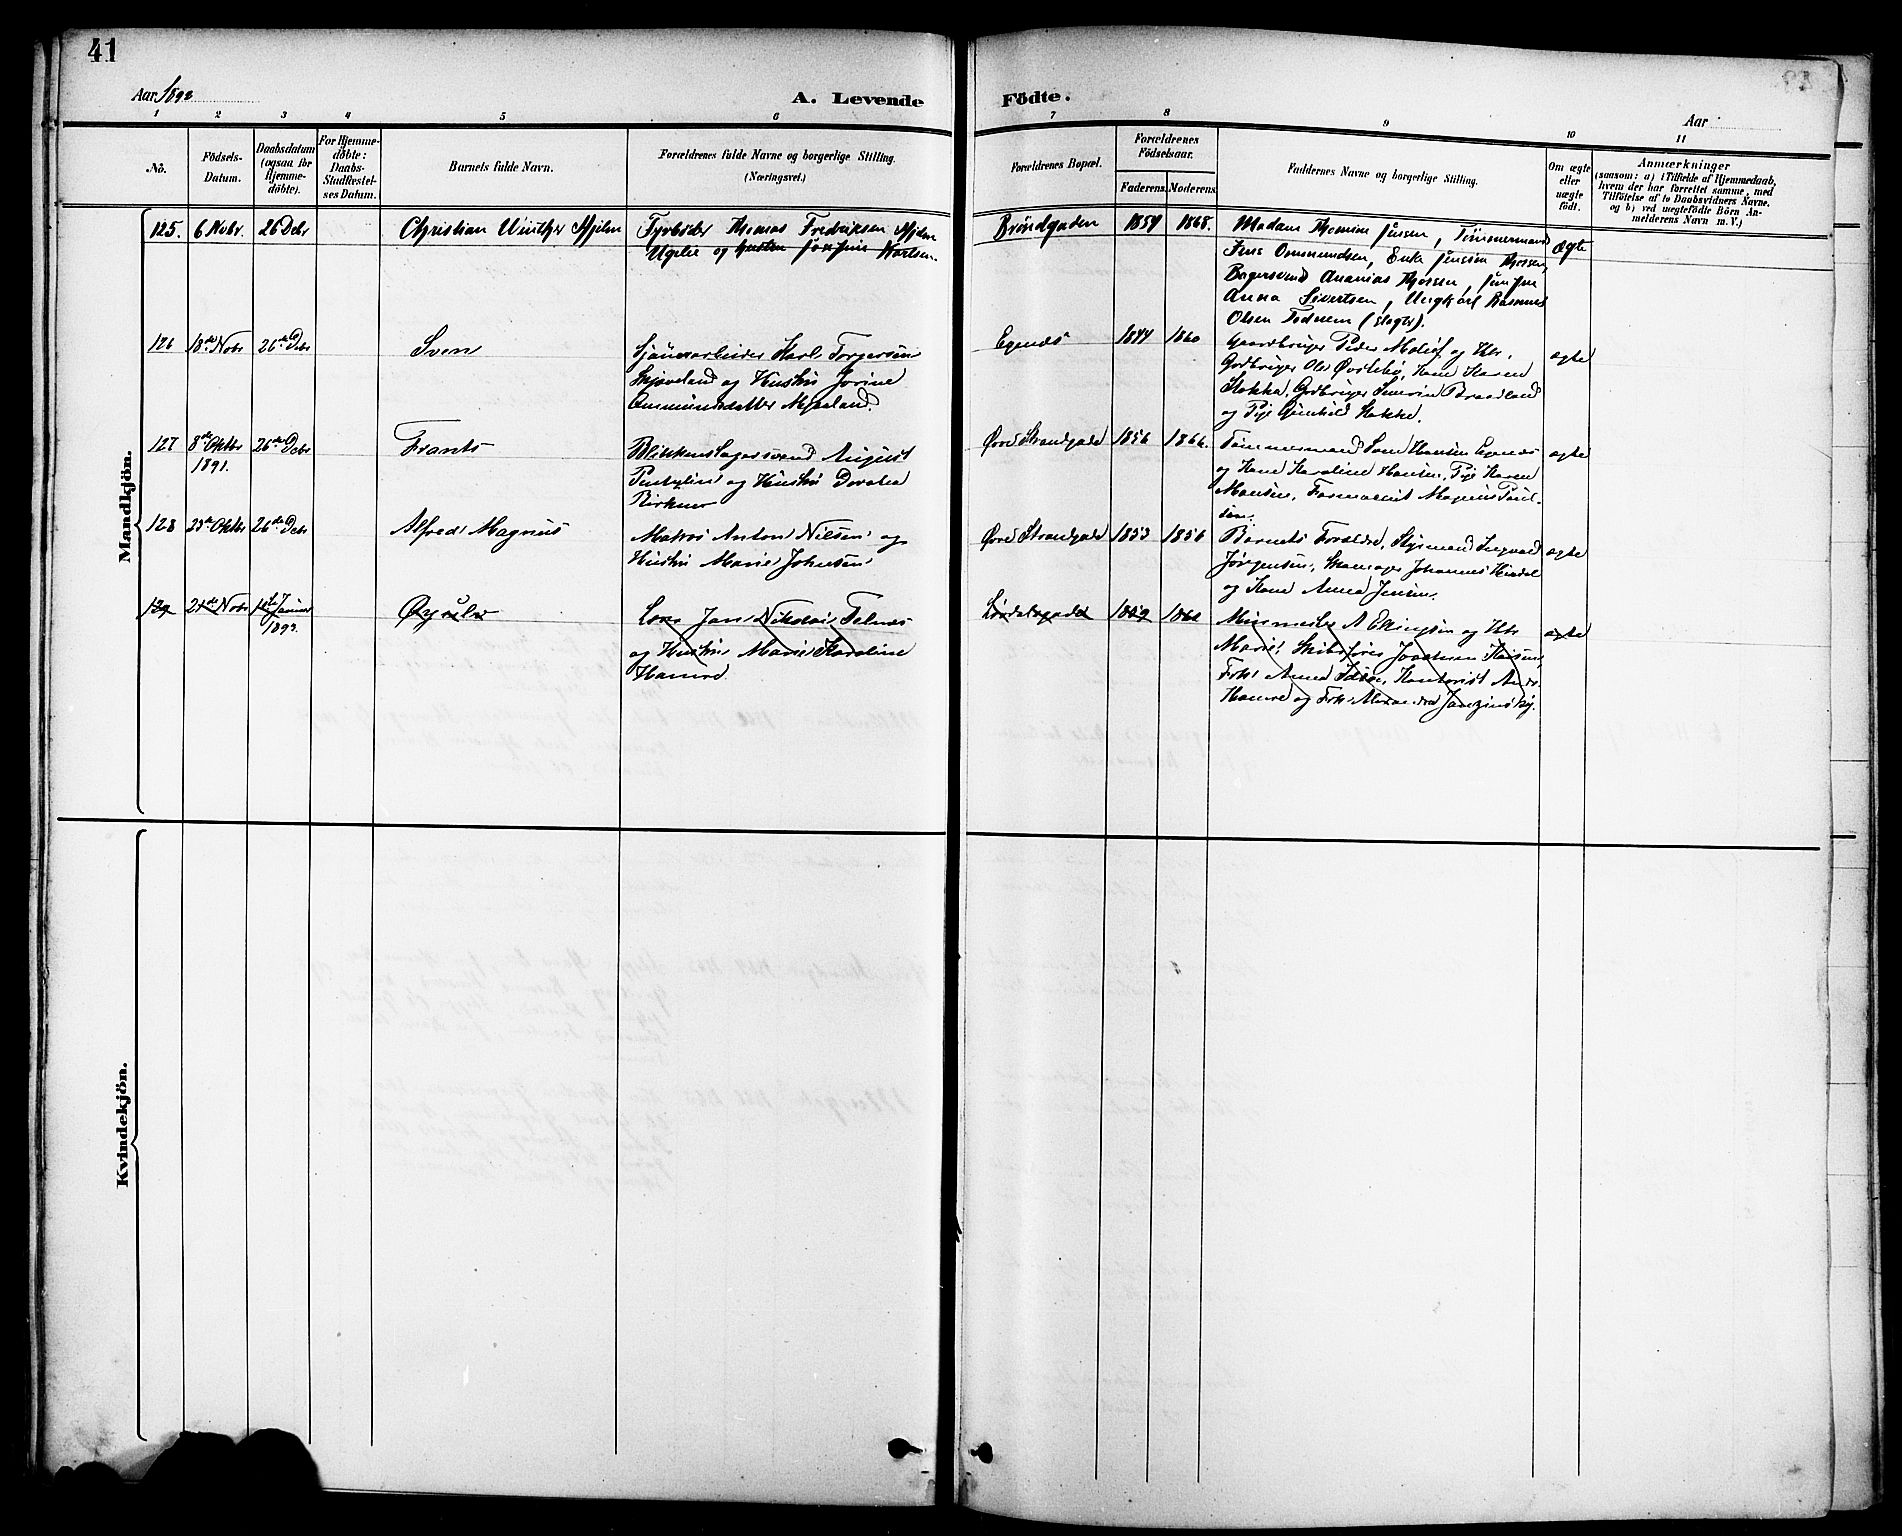 41
Aar 1892
A. Levende Födte.
Aar
1 2 3 4 5 6 7 8 9 10 11
No.
Födsels-
Datum.
Daabsdatum
(ogsaa for
Hjemme-
döbte).
For Hjemme-
döbte:
Daabs-
Stadfæstel-
ses Datum.
Barnets fulde Navn.
Forældrenes fulde Navne og borgerlige Stilling.
(Næringsvei.)
Forældrenes Bopæl.
Forældrenes
Födselsaar.
Faderens. Moderens.
Faddernes Navne og borgerlige Stilling.
Om ægte
eller
uægte
födt.
Anmærkninger
(saasom: a) i Tilfælde af Hjemmedaab,
hvem der har forrettet samme, med
Tilföielse af to Daabsvidners Navne.
og b) ved uægtefödte Börn An-
melderens Navn m. V.)
Mandkjön.
125. 6 Novbr. 26 Debr Christian Winther Hjelm
Fyrböder Thomas Fredriksen Hjelm
Ugelie og Hustru Josefine Karlsen.
Bröndgaden 1859 1868.
Madam Thomine Jensen, Tömmermand
Jens Ommundsen, Enke Jensine Thorsen,
Bagersvend Ananias Thorsen,
Anna Sivertsen, Ungkarl Rasmus
Olsen Todnem (Slagter).
Ægte
126 18de Nobr 26de Debr Sven
Sjöuearbeider Karl Torgersen
Skjæveland og Hustru Jorine
Ommundsdatter Mjæland.
Egenæs 1844 1860
Gaardbruger Peder Molief og Htr,
Grdbruger Ole Övrebö, Kone Karen
Stokka, Grdbruger Severin Braadland
og Pige Gunhild Stokke.
ægte
127 8de Oktbr 26de Debr Frants
1891.
Blikkenslagersvend August
og Hustru Dorthea
Birkner
Övre Strandgade 1856 1866.
Tömmermand Hansen Egenæs
og Kone Karoline Hansen, Pige Karen
Hansen, Farmaceut Magnus Paul-
sen.
ægte
128 23de Oktbr 26de Debr Alfred Magnus
Matros Anton Nilsen og
Hustru Marie Johnsen
Övre Strandgade 1853 1856
Barnets Forældre, Styrmand Ingvald
Jörgensen, Skomager Johannes Hindal
og Kone Anna Jensen.
ægte
129 21de Nobr 1ste Januar Öyulv
1893.
Lods Jan Nikolai Telnæs
og Hustru Marie Karoline
Hamre
Lördalsgade 1859 1862
Minemester A Ellingsen og Htr
Marie, Skibsförer Joachim
Frk. Anna Idsöe, Kontorist Andr.
Hamre og Frk.
ægte
Kvindekjön.